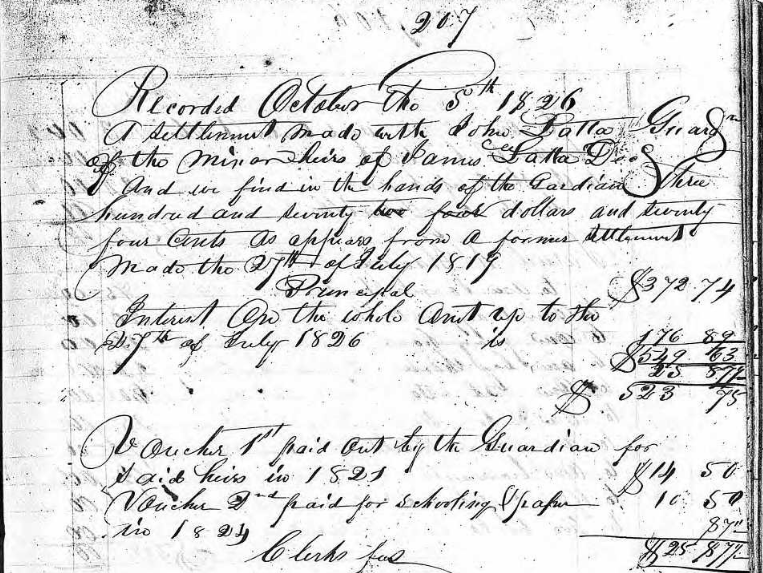 207
Recorded October the 5th 1826
A settlement made with John Latta Guardn
of the minor heirs of James Latta Decd
And we find in the hands of the Gardian Three
hundred and seventy two four dollars and seventy
four Cents As appears from a former settlement
Made the 27th of July 1819
Principal $372 74
Interest On the whole Amt up to the
27th of July 1826 is 176 89
$549 63
25 87½
$ 523 75
Voucher 1st paid out by the Guardian for
said heirs in 1821 $14 50
Voucher 2nd paid for schooling & paper 10 50
in 1824 87½
Clerks fees $25 87½